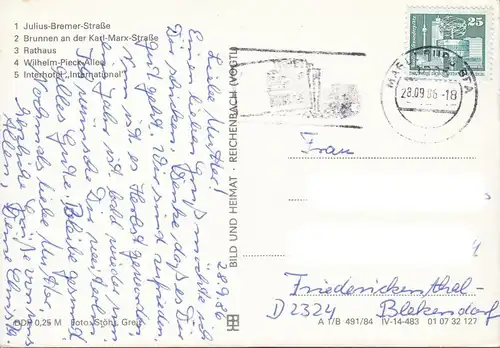 1 Julius-Bremer-Straße
2 Brunnen an der Karl-Marx-Straße
3 Rathaus
4 Wilhelm-Pieck-Allee
5 Interhotel „International"
BILD UND HEIMAT · REICHENBACH (VOGTL)
28.9.86
Liebe Mutter!
Einen lieben Gruß möchte ich
Dir schicken. Denke, daß es Dir
gut geht. Wir sind zufrieden.
Nun ist es Herbst geworden
ein Jahr ist bald wieder um.
Ich wünsche Dir weiterhin
alles Gute. Bleibe gesund
Nochmals liebe Mutter,
herzliche Grüße von uns
Allen, Deine
DDR 0,25 M Foto: Stöhr, Greiz
25
28.09.86-18
Frau
Friederickenthal-
D 2324 Blekendorf
A 1/B 491/84 IV-14-483 01 07 32 127